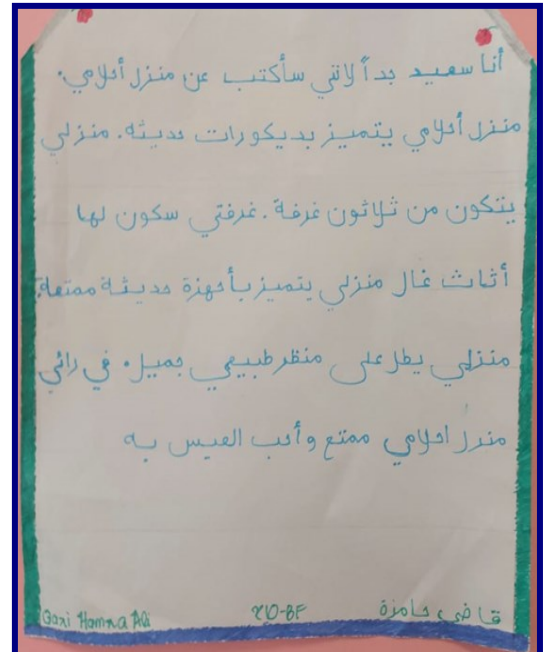 أنا سعيد جداً لانني سأكتب عن منزل أحلامي.
منزل أحلامي يتميز بديكورات حديثه. منزلي
يتكون من ثلاثون غرفة. غرفتي سكون لها
أثاث غال منزلي يتميز بأجهزة حديثة ممتعة.
منزلي يطل على منظر طبيعي جميل. في رائي
منزل احلامي ممتع وأحب العيس به
قاضي حامزة
XD-BF
Qazi Hamza Ali